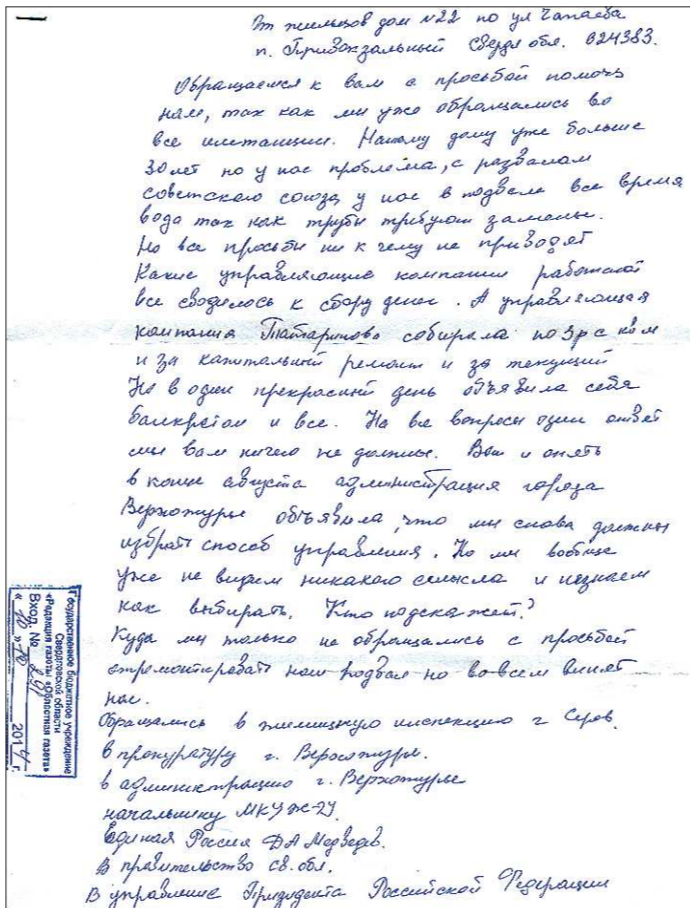 От жильцов дом №22 по ул Чапаева
п. Привокзальный Свердл обл. 624383.
Обращаемся к вам с просьбой помочь
нам, так как мы уже обращались во
все инстанции. Нашему дому уже больше
30 лет но у нас проблема, с развалом
советского союза у нас в подвале все время
вода так как трубы требуют замены.
Но все просьбы ни к чему не приводят
Какие управляющие компании работали
все сводилось к сбору денег. А управляющая
компания Татариново собирала по 3р с кв м
и за капитальный ремонт и за текущий
Но в один прекрасный день объявила себя
банкротом и все. На все вопросы один ответ
мы вам ничего не должны. Вот и опять
в конце августа администрация города
Верхотурье объявила, что мы снова должны
избрать способ управления. Но мы вообще
уже не видим никакого смысла и незнаем
как выбирать. Кто подскажет?
Куда мы только не обращались с просьбой
отремонтировать наш подвал но во всем винят
нас.
Обращались в жилищную инспекцию г Серов.
в прокуратуру г. Верхотурье.
в администрацию г. Верхотурье
начальнику МКУ
Единая Россия ДА Медведев.
В правительство св. обл.
В управление Президента Российской Федерации
Государственное бюджетное учреждение
Свердловской области
«Редакция газеты «Областная газета»
Вход. №
«10» 10 2014 г.